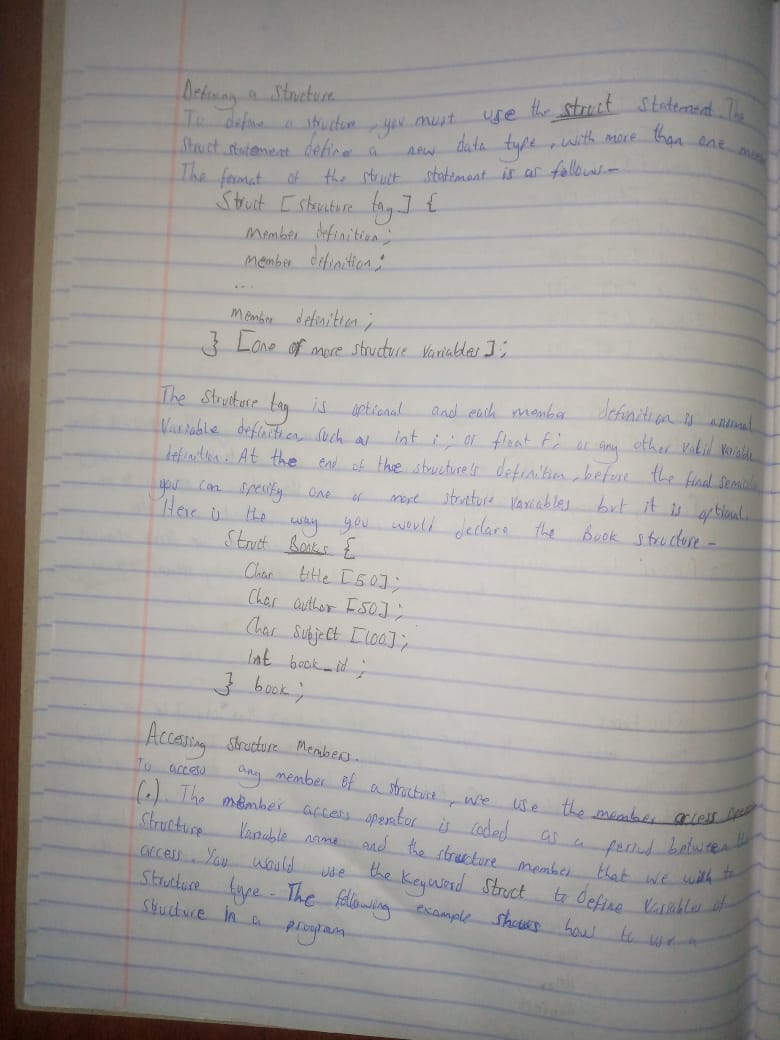 Defining a Structure
To define a structure, you must use the struct statement. The
Struct statement define a new data type, with more than one
The format of the struct statement is as follows.-
Struct [structure tag] {
member definition;
member definition;
...
member definition;
} [one or more structure Variables];
The structure tag is optional and each member definition is a normal
Variable definition such as int i; or float f; or any other valid variable
definition. At the end of the structure's definition, before the final
you can specify one or more structure variables but it is optional.
Here is the way you would declare the Book structure -
Struct Books {
Char title [50];
Char author [50];
Char subject [100];
Int book_id;
} book;
Accessing structure Members.
To access any member of a structure, we use the member access
(.). The member access operator is coded as a period between the
Structure Variable name and the structure member that we wish to
access. You would use the keyword struct to define Variables of
Structure type - The following example shows how to use a
Structure in a program